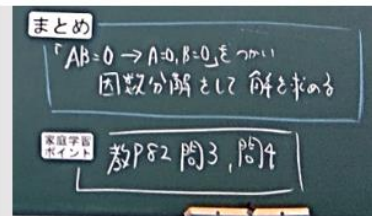 まとめ
「AB=0 → A=0, B=0」をつかい
因数分解をして解を求める
家庭学習
ポイント
教P82 問3, 問4